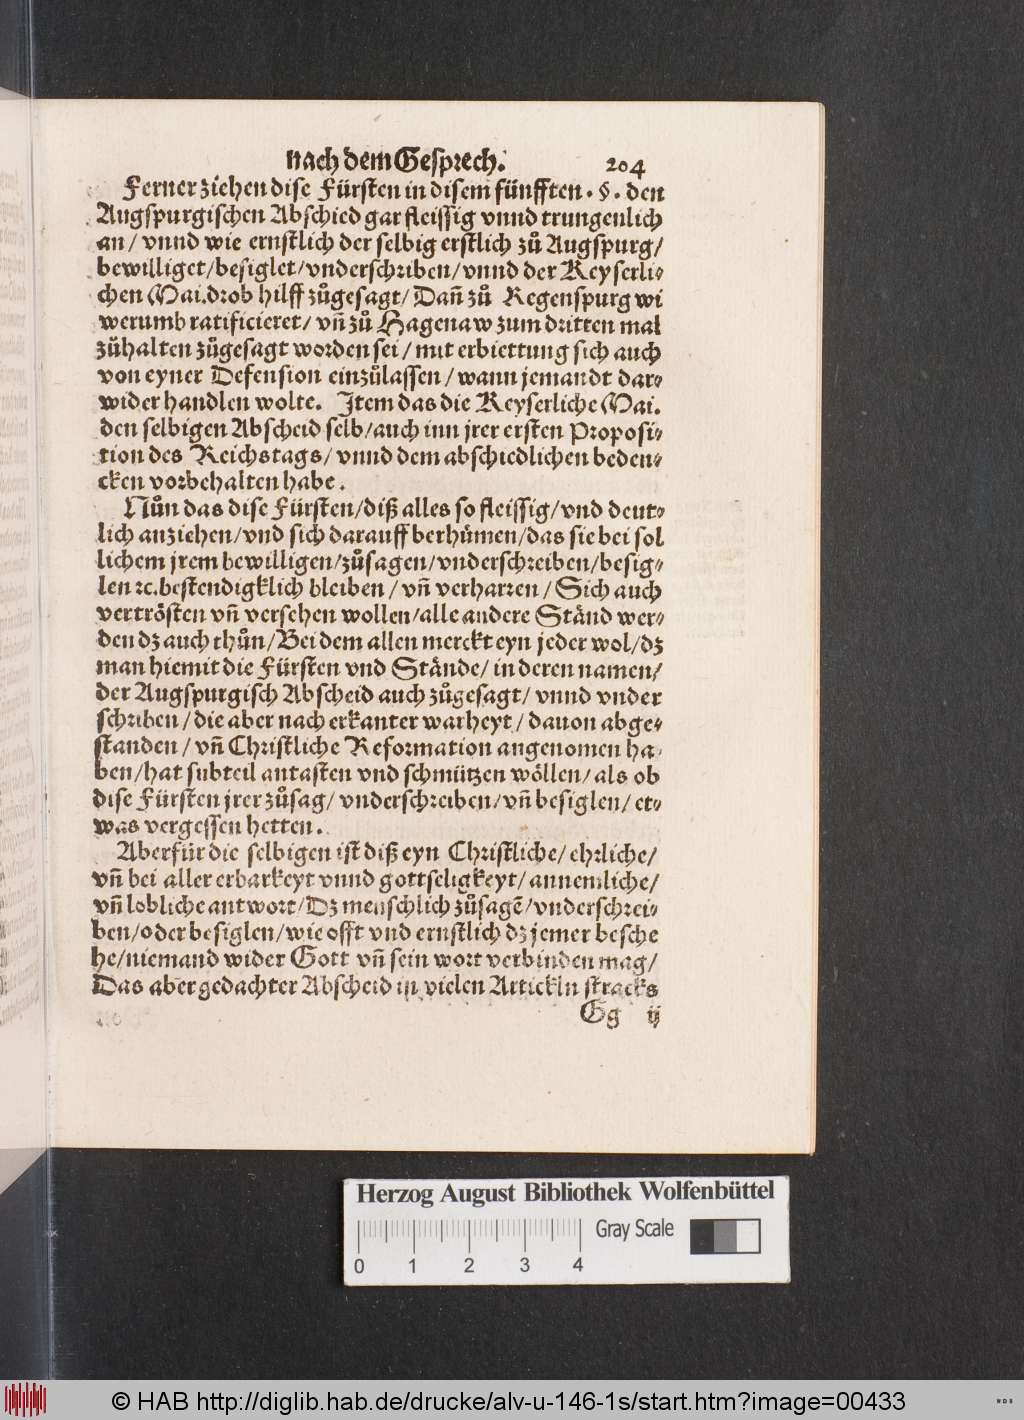 nach dem Gesprech. 204
Ferner ziehen dise Fürsten in disem fünfften . §. den
Augspurgischen Abschied gar fleissig vnnd trungenlich
an / vnnd wie ernstlich der selbig erstlich zuͦ Augspurg/
bewilliget/besiglet/vnderschriben/vnnd der Keyserli⸗
chen Mai.drob hilff zuͦgesagt/ Dañ zuͦ Regenspurg wi
werumb ratificieret/ vñ zuͦ Hagenaw zum dritten mal
zuͦhalten zuͦgesagt worden sei / mit erbiettung sich auch
von eyner Defension einzuͦlassen / wann jemandt dar⸗
wider handlen wolte. Item das die Keyserliche Mai.
den selbigen Abscheid selb/auch inn jrer ersten Proposi⸗
tion des Reichstags/ vnnd dem abschiedlichen beden⸗
cken vorbehalten habe .
Nuͦn das dise Fürsten/diß alles so fleissig/vnd deut⸗
lich anziehen/vnd sich darauff berhümen/das sie bei sol
lichem jrem bewilligen/zuͦsagen/vnderschreiben/besig⸗
len ꝛc.bestendigklich bleiben / vñ verharren / Sich auch
vertrösten vñ versehen wollen/alle andere Ständ wer⸗
den dz auch thuͦn/Bei dem allen merckt eyn jeder wol/dz
man hiemit die Fürsten vnd Stände/ in deren namen/
der Augspurgisch Abscheid auch zuͦgesagt/ vnnd vnder
schriben / die aber nach erkanter warheyt / dauon abge⸗
standen / vñ Christliche Reformation angenomen ha⸗
ben/hat subteil antasten vnd schmützen wöllen/ als ob
dise Fürsten jrer zuͦsag/ vnderschreiben/vñ besiglen/ et⸗
was vergessen hetten .
Aber für die selbigen ist diß eyn Christliche/ ehrliche/
vñ bei aller erbarkeyt vnnd gottseligkeyt/ annemliche/
vñ lobliche antwort/Dz menschlich zuͦsagē/vnderschrei⸗
ben/oder besiglen/wie offt vnd ernstlich dz jemer besche
he/niemand wider Gott vñ sein wort verbinden mag/
Das aber gedachter Abscheid in vielen Artickln stracks
Gg ij
Herzog August Bibliothek Wolfenbüttel
Gray Scale
0 1 2 3 4
© HAB http://diglib.hab.de/drucke/alv-u-146-1s/start.htm?image=00433